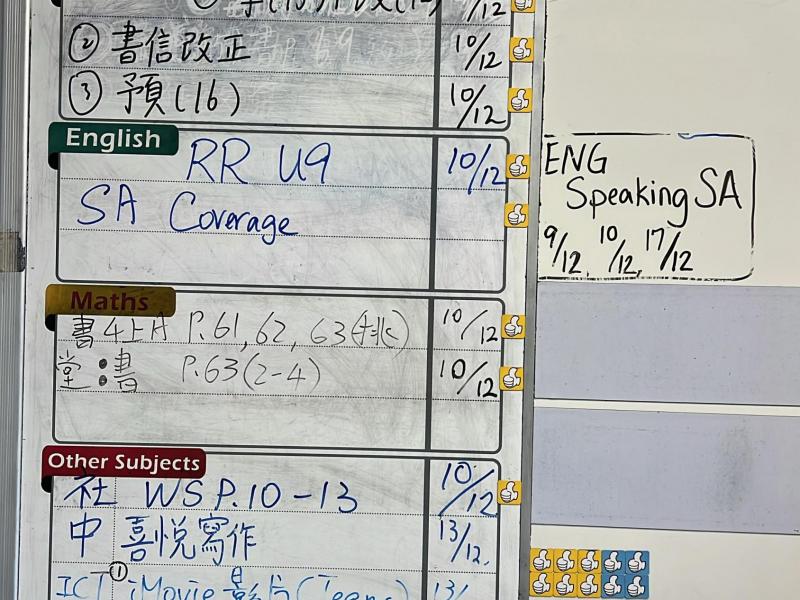 ② 書信改正 10/12
③ 預(16) 10/12
English
RR U9 10/12
SA Coverage
ENG
Speaking SA
9/12, 10/12, 17/12
Maths
書4上A P.61, 62, 63(挑) 10/12
堂:書 P.63(2-4) 10/12
Other Subjects
社 WS P.10-13 10/12
中 喜悅寫作 13/12.
ICT ① iMovie 影片 (Teams) 13/